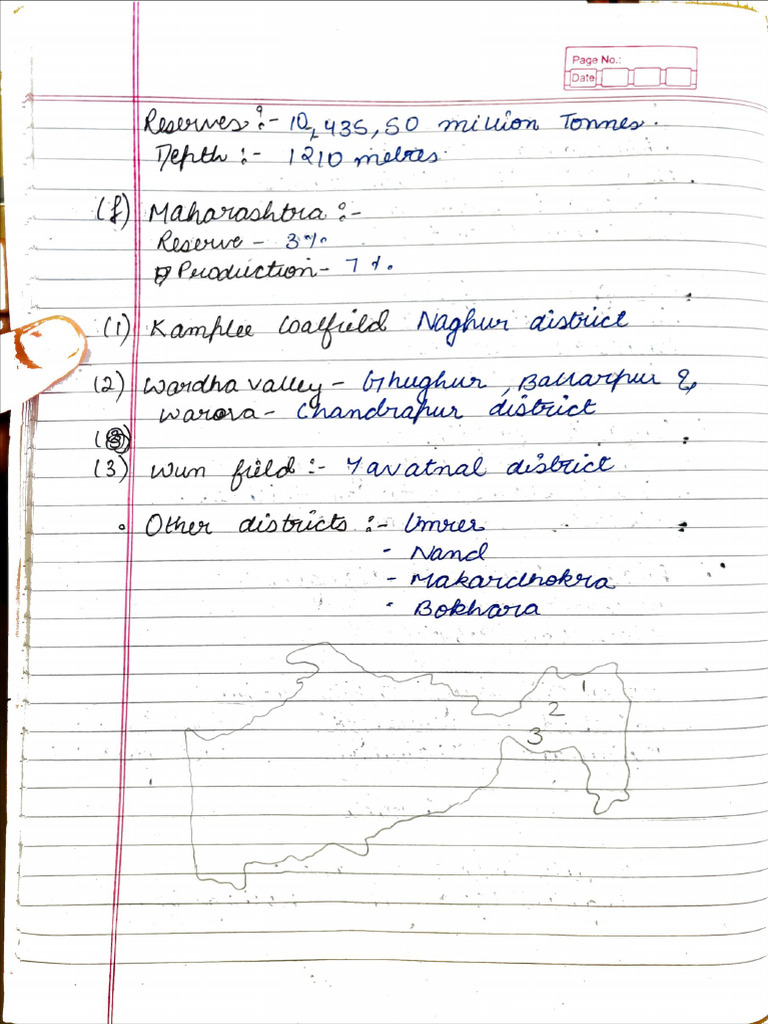 Page No.:
Date
Reserves :- 10,435,50 million Tonnes.
Depth :- 1210 metres.
(f) Maharashtra :-
Reserve - 3%
Production - 7%.
(1) Kamplee Coalfield Naghur district
(2) Wardha valley - Ghughur, Ballarpur &
Warora - Chandrapur district
(3) Wun field :- Yavatnal district
• Other districts :- Umrer
- Nand
- Makardhokra
- Bokhara
1
2
3